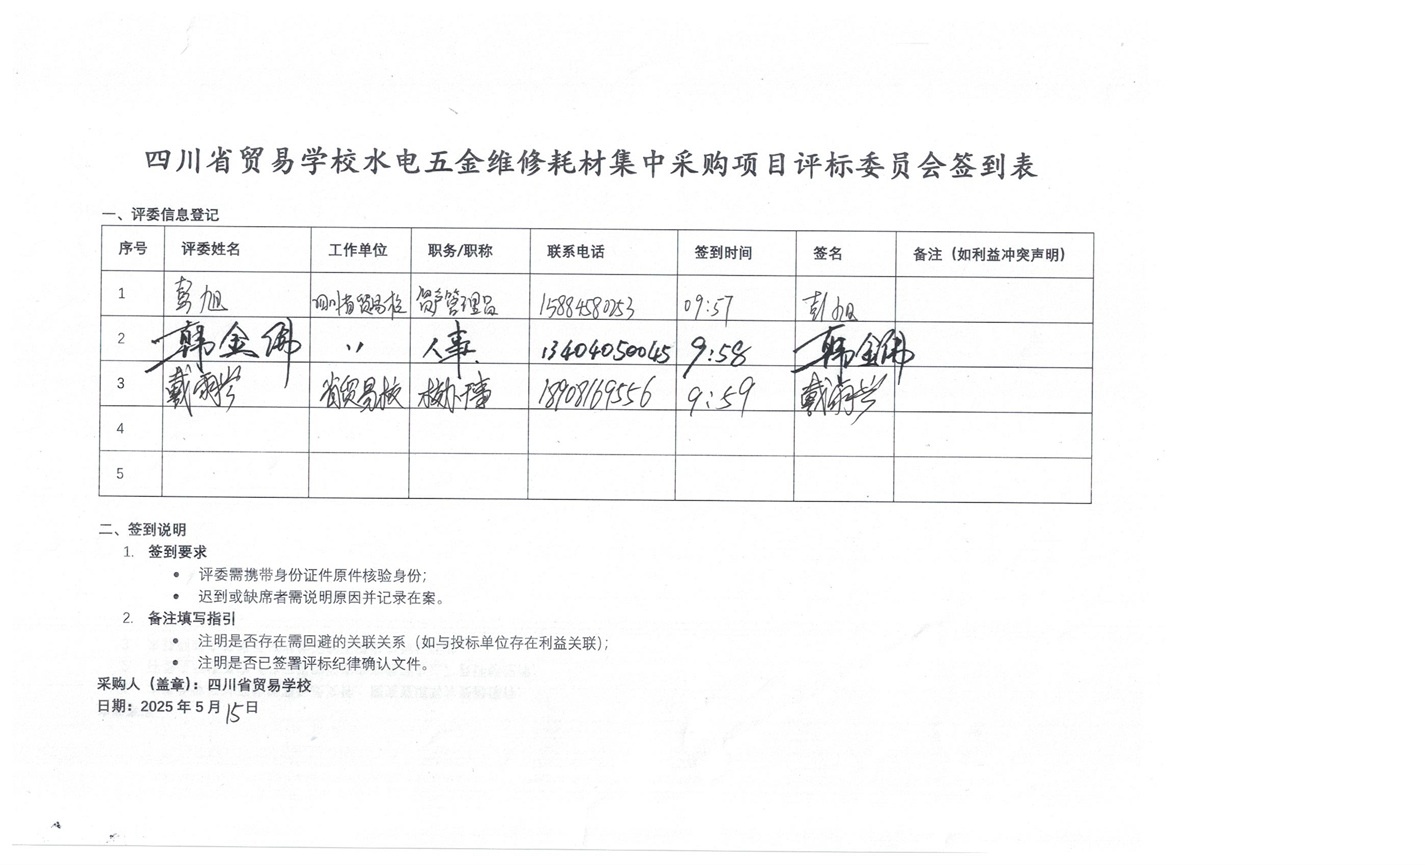 四川省贸易学校水电五金维修耗材集中采购项目评标委员会签到表
一、评委信息登记
序号 评委姓名 工作单位 职务/职称 联系电话 签到时间 签名 备注（如利益冲突声明）
1 彭旭 四川省贸易校 资产管理员 15884580253 09:57 彭旭
2 韩金佛 〃 人事 13404050045 9:58 韩金佛
3 戴 省贸易校 校办 18908169556 9:59 戴
4
5
二、签到说明
1. 签到要求
• 评委需携带身份证件原件核验身份；
• 迟到或缺席者需说明原因并记录在案。
2. 备注填写指引
• 注明是否存在需回避的关联关系（如与投标单位存在利益关联）；
• 注明是否已签署评标纪律确认文件。
采购人（盖章）：四川省贸易学校
日期：2025 年 5 月 15 日